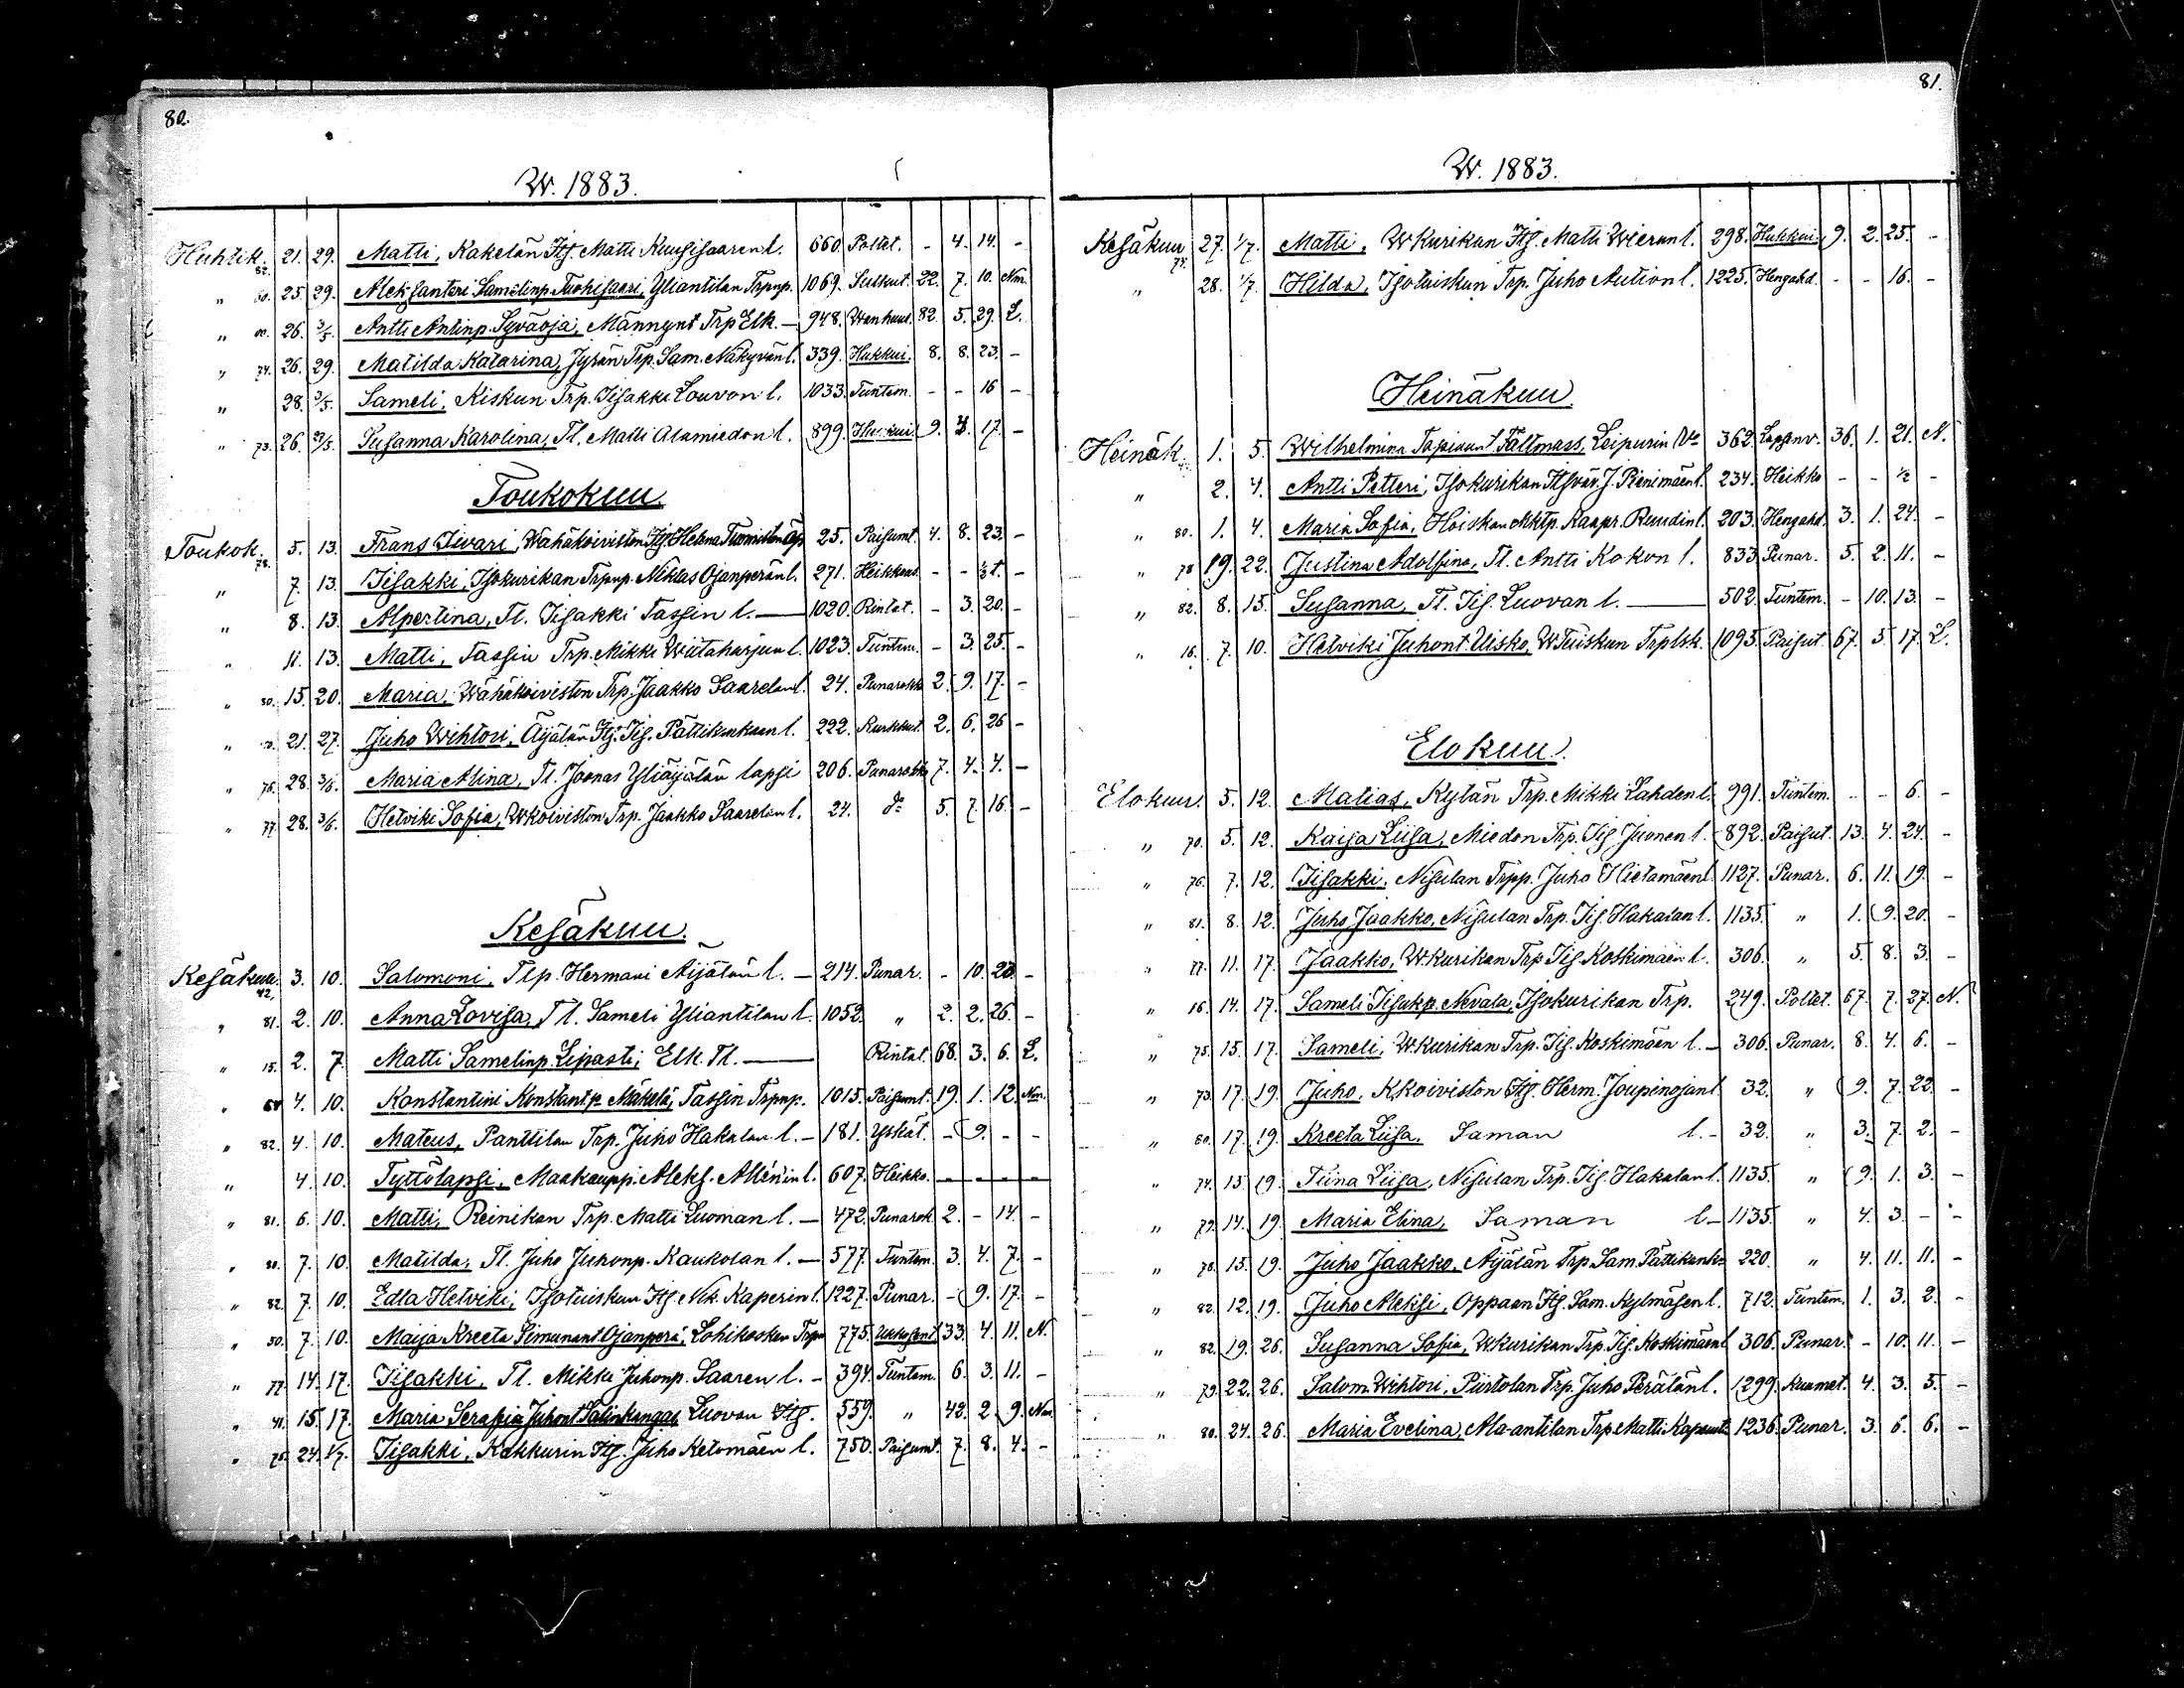 80.
W. 1883.
Huhtik. 82. 21. 29. Matti, Kakelan Itf. Matti Kuusisaaren l. 660. Poltet. - 4. 14. -
„ 60. 25. 29. Aleksanteri Samelinp. Tuohisaari, Yliantilan Trpnp. 1069. Sulkut. 22. 7. 10. Nm.
„ 00. 26. 3/5. Antti Antinp. Syväoja, Männyns Trp Elk. — 948. Wanhuut. 82. 5. 29. L.
„ 74. 26. 29. Matilda Katarina, Jyrän Trp. Sam. Näkyvän l. 339. Hukkui. 8. 8. 23. -
„ 28. 3/5. Sameli, Kiskun Trp. Iisakki Louvon l. 1033. Tuntem. - - 16 -
„ 73. 26. 29/5. Susanna Karolina, Tl. Matti Alamiedon l. 899. Hukkui 9. 4. 17. -
Toukokuu.
Toukok. 78. 5. 13. Frans Iivari, Wähäkoiviston Itf. Helena Tuomiston Äp. 25. Paisumt. 4. 8. 23. -
„ 7. 13. Iisakki, Isokurikan Trpnp. Niklas Ojanperän l. 271. Heikkout. - - ½ t. -
„ 8. 13. Alpertina, Tl. Iisakki Tassin l. — 1020. Rintat. - 3. 20. -
„ 11. 13. Matti, Tassin Trp. Mikki Wiitaharjun l. 1023. Tuntem. - 3. 25. -
„ 80. 15. 20. Maria, Wähäkoiviston Trp. Jaakko Saarelan l. 24. Punarokk. 2. 9. 17. -
„ 80. 21. 27. Juho Wihtori, Äijälän Itf. Iis. Pättikankaan l. 222. Kurkkut. 2. 6. 26 -
„ 76. 28. 3/6. Maria Alina, Tl. Joonas Yliäijälän lapsi 206. Punarokk. 7. 4. 4. -
„ 77. 28. 3/6. Hetviki Sofia, W.koiviston Trp. Jaakko Saarelan l. 24. do 5. 7. 16. -
Kesäkuu.
Kesäkuu. 82. 3. 10. Salomoni, Tlp. Hermani Äijälän l. — 214. Punar. - 10. 28. -
„ 81. 2. 10. Anna Lovisa, Tl. Sameli Yliantilan l. 1052. „ 2. 2. 26. -
„ 15. 2. 7. Matti Samelinp. Leipasti, Elk. Tl. — Rintat. 68. 3. 6. L.
„ 64 4. 10. Konstantini Konstant.p. Mäkelä, Tassin Trpnp. 1015. Paisumt. 19. 1. 12. Nm.
„ 82. 4. 10. Mateus, Panttilan Trp. Juho Hakalan l. — 181. Yskät. - 9. - -
„ 4. 10. Tyttölapsi, Maakaupp. Aleks. Allénin l. 607. Heikko. - - - -
„ 81. 6. 10. Matti, Reinikan Trp. Matti Luoman l. — 472. Punarok. 2. - 14. -
„ 80. 7. 10. Matilda, Tl. Juho Juhonp. Kaukolan l. — 577. Tuntem. 3. 4. 7. -
„ 82. 7. 10. Edla Hetviki, Isotuiskun Itf. Nik. Kaperin l. 1227. Punar. - 9. 17. -
„ 50. 7. 10. Maija Kreeta Simunant. Ojanperä, Lohikosken Trpn 775. 33. 4. 11. N.
„ 77. 14. 17. Iisakki, Tl. Mikki Juhonp. Saaren l. — 394. Tuntem. 6. 3. 11. -
„ 41. 15. 17. Maria Serafia Juhont. Salinkangas Luovan Itf. 559. „ 42. 2. 9. Nm.
„ 75. 24. 1/7. Iisakki, Kakkurin Itf. Juho Ketomäen l. 750. Paisumt. 7. 8. 4. -
81.
W. 1883.
Kesäkuu 74. 27. 1/7. Matti, W.kurikan Itf. Matti Wierun l. 298. Hukkui. 9. 2. 25. -
„ 28. 1/7. Hilda, Isotuiskun Trp. Juho Aution l. 1225. Hengahd. - - 16. -
Heinäkuu.
Heinäk. 1. 5. Wilhelmina Tapiaant. Fältmars, Leipurin Vo 362. Lapsnv. 36. 1. 21. N.
„ 2. 4. Antti Petteri, Isokurikan Itfväv. J. Pienimäen l. 234. Heikko - - ½ -
„ 80. 1. 4. Maria Sofia, Hoiskan Mktp. Kaapr. Rundin l. 203. Hengahd. 3. 1. 24. -
„ 78 19. 22. Justina Adolfina, Tl. Antti Kokon l. 833. Punar. 5. 2. 11. -
„ 82. 8. 15. Susanna, Tl. Iis. Luovan l. — 502. Tuntem. - 10. 13. -
„ 16. 7. 10. Hetviki Juhont. Uisko, W.Tuiskun Trplsk. 1095. Paisut. 67. 5. 17. L.
Elokuu.
Elokuu. 5. 12. Matias, Kylän Trp. Mikki Lahden l. 991. Tuntem. - - 6. -
„ 70. 5. 12. Kaisa Liisa, Miedon Trp. Iis Juonen l. 892. Paisut. 13. 4. 24. -
„ 76. 7. 12. Iisakki, Nisulan Trpp. Juho Hietamäen l. 1127. Punar. 6. 11. 19. -
„ 81. 8. 12. Juho Jaakko, Nisulan Trp. Iis. Hakalan l. 1135. „ 1. 9. 20. -
„ 77. 11. 17. Jaakko, W.kurikan Trp Iis. Koskimäen l. 306. „ 5. 8. 3. -
„ 16. 14. 17. Sameli Iisakp. Nevala, Isokurikan Trp. 249. Poltet. 67. 7. 27. N.
„ 75. 15. 17. Sameli, W.kurikan Trp. Iis. Koskimäen l. — 306. Punar. 8. 4. 6. -
„ 73. 17. 19. Juho, K.koiviston Itf. Herm. Joupinojan l 32. „ 9. 7. 22 -
„ 80. 17. 19. Kreeta Liisa, Saman l. - 32. „ 3. 7. 2. -
„ 74. 15. 19. Tiina Liisa, Nisulan Trp. Iis. Hakalan l. 1135. „ 9. 1. 3. -
„ 79. 14. 19. Maria Elina, Saman l. — 1135. „ 4. 3. - -
„ 78. 15. 19. Juho Jaakko, Äijälän Trp. Sam. Pättikank. 220. „ 4. 11. 11. -
„ 82. 12. 19. Juho Aleksi, Oppaan Itf. Sam. Kylmäsen l. 712. Tuntem. 1. 3. 2. -
„ 82. 19. 26. Susanna Sofia, W.kurikan Trp. Iis. Koskimäen l 306. Punar. - 10. 11. -
„ 79. 22. 26. Salom. Wihtori, Piirtolan Trp. Juho Perälän l. 1299. Kuumet. 4. 3. 5. -
„ 80. 24. 26. Maria Evelina, Ala-antilan Trp. Matti 1236. Punar. 3. 6. 6. -